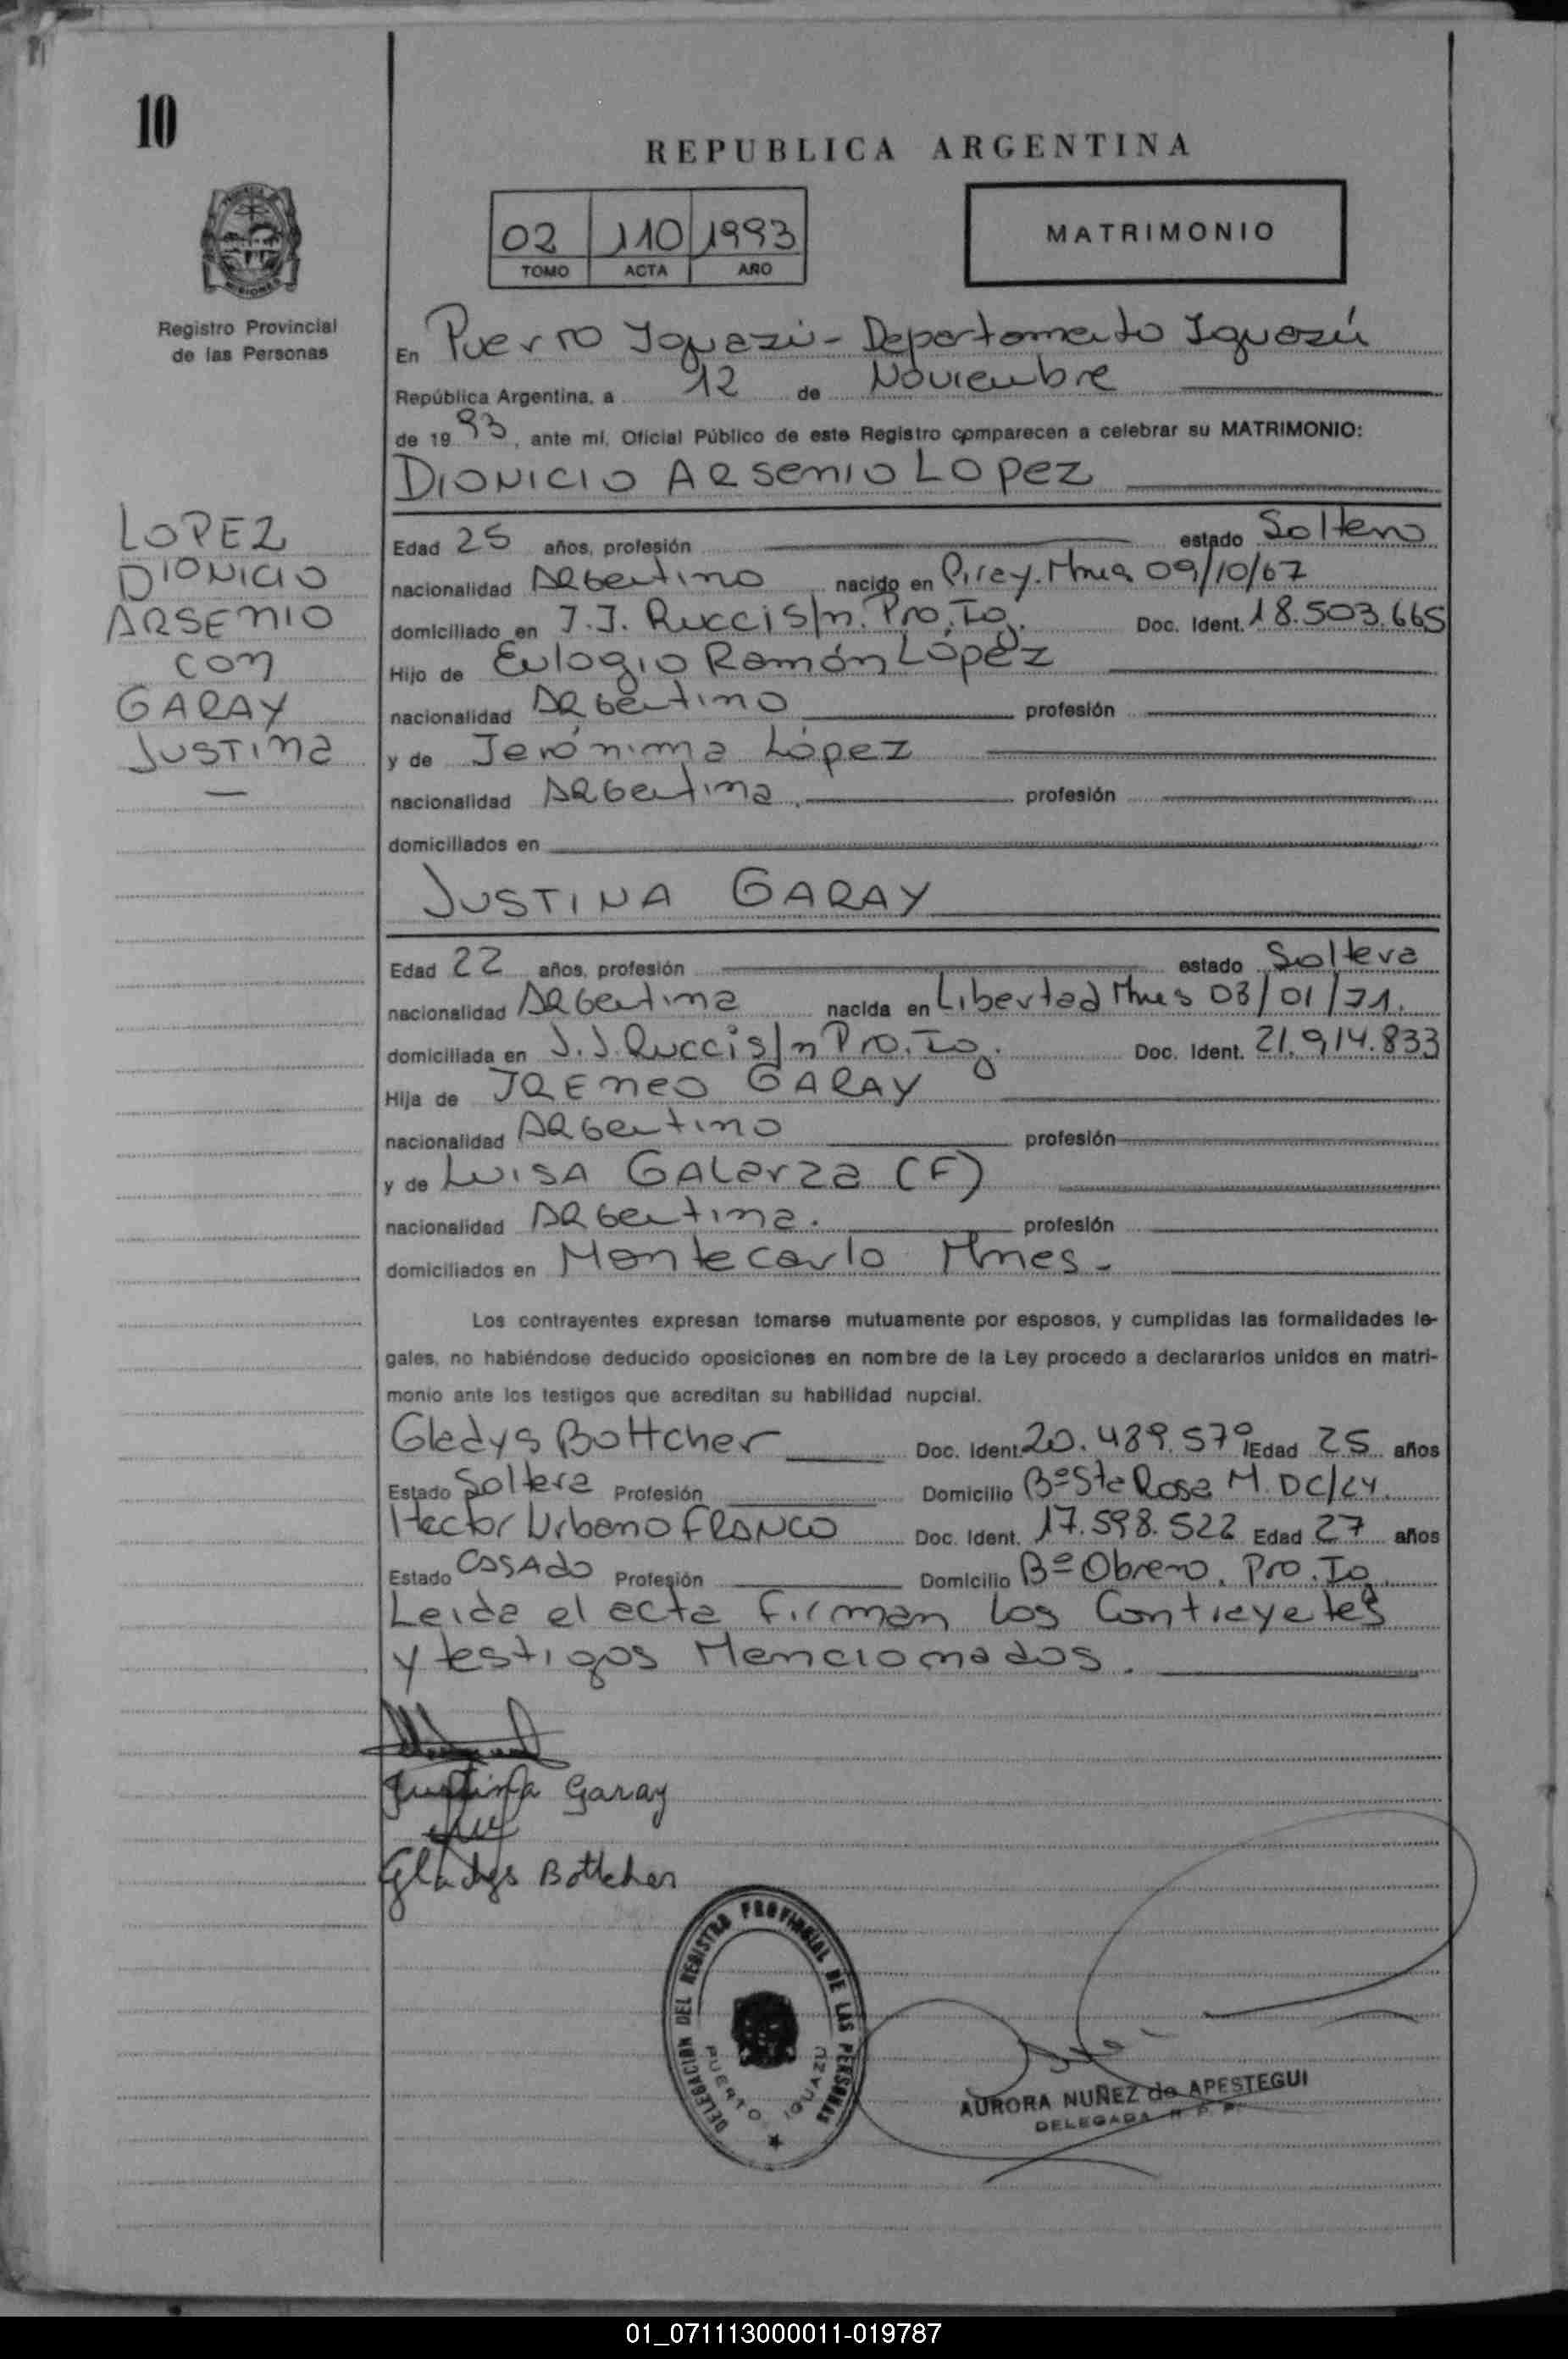 10
REPUBLICA ARGENTINA
02 110 1993
TOMO ACTA AÑO
MATRIMONIO
Registro Provincial
de las Personas
En Puerto Iguazú - Departamento Iguazú
República Argentina, a 12 de Noviembre
de 1993, ante mí, Oficial Público de este Registro comparecen a celebrar su MATRIMONIO:
DIONICIO ARSENIO LOPEZ
LOPEZ
DIONICIO
ARSENIO
CON
GARAY
JUSTINA
Edad 25 años, profesión estado Soltero
nacionalidad Argentino nacido en Piray. Mnes 09/10/67
domiciliado en J.J. Rucci S/n. Pto. Ig. Doc. Ident. 18.503.665
Hijo de Eulogio Ramón López
nacionalidad Argentino profesión
y de Jerónima López
nacionalidad Argentina. profesión
domiciliados en
JUSTINA GARAY
Edad 22 años, profesión estado Soltera
nacionalidad Argentina nacida en Libertad Mnes 03/01/71.
domiciliada en J.J. Rucci s/n Pto. Ig. Doc. Ident. 21.914.833
Hija de IRENEO GARAY
nacionalidad Argentino profesión
y de LUISA GALARZA (F)
nacionalidad Argentina. profesión
domiciliados en Montecarlo Mnes.
Los contrayentes expresan tomarse mutuamente por esposos, y cumplidas las formalidades le-
gales, no habiéndose deducido oposiciones en nombre de la Ley procedo a declararlos unidos en matri-
monio ante los testigos que acreditan su habilidad nupcial.
Gladys Bottcher Doc. Ident. 20.489.579 Edad 25 años
Estado Soltera Profesión Domicilio Bº Sta Rosa M. DC/24.
Hector Urbano FRANCO Doc. Ident. 17.598.522 Edad 27 años
Estado Casado Profesión Domicilio Bº Obrero. Pto. Ig.
Leida el acta firman los Contrayetes
y testigos Mencionados.
Justina Garay
Gladys Bottcher
DELEGACION DEL REGISTRO PROVINCIAL DE LAS PERSONAS
PUERTO IGUAZU
AURORA NUÑEZ de APESTEGUI
DELEGADA R. P. P.
01_071113000011-019787